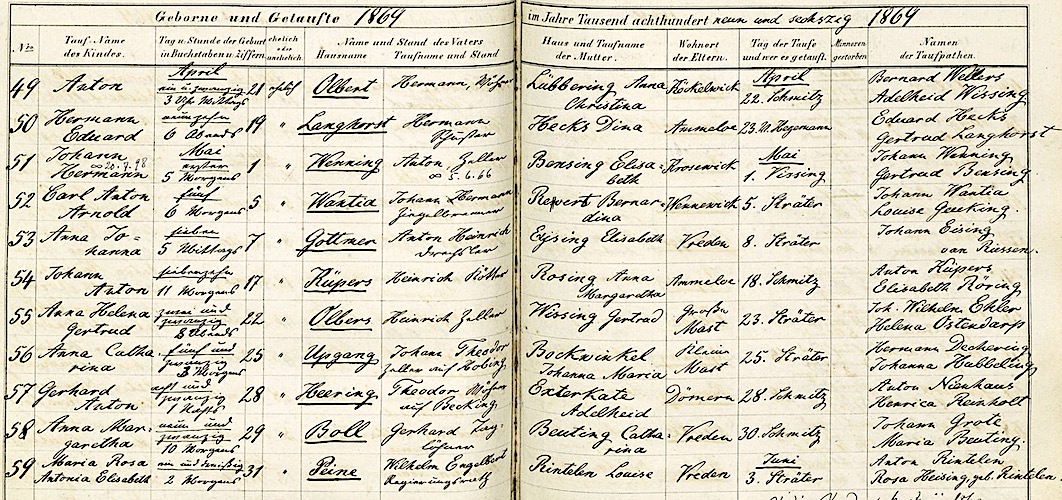 Geborne und Getaufte 1869 im Jahre Tausend achthundert neun und sechszig 1869
Nro Tauf-Name des Kindes. Tag u. Stunde der Geburt in Buchstaben u. Ziffern. ehelich oder unehelich. Name und Stand des Vaters Hausname Taufname und Stand Haus und Taufname der Mutter. Wohnort der Eltern. Tag der Taufe und wer es getauft. Namen der Taufpathen.
April April
49 Anton ein u. zwanzig 21 ehelich Olbert Hermann, Lübbering Anna Köckelwick Bernard
3 Uhr Mittags Christina 22. Schmitz Adelheid Wissing
50 Hermann neunzehn 19 " Langhorst Hermann Hecks Dina Ammeloe 23. Hegemann Eduard Hecks
Eduard 6 Abends Gertrud Langhorst
Mai Mai
51 Johann erster 1 " Wenning Anton, Zeller Bensing Elisa- Crosewick Johann Wenning
∞ 20.7.98
Hermann 5 Morgens ∞ 5.6.66 beth 1. Vissing Gertrud Bensing
52 Carl Anton fünf 5 " Wantia Johann Hermann Bernar- Wennewick 5. Sträter Johann Wantia
Arnold 6 Morgens dina Louise
53 Anna Jo- sieben 7 " Gottmer Anton Heinrich Eising Elisabeth Vreden 8. Sträter Johann Eising
hanna 5 Mittags Drechsler van Rüssen.
54 Johann siebenzehn 17 " Küpers Heinrich Rosing Anna Ammeloe 18. Schmitz Anton Küpers
Anton 11 Morgens Margaretha Elisabeth Röring
55 Anna Helena zwei und 22 " Olbers Heinrich Zeller Wissing Gertrud Großen 23. Sträter Joh. Wilhelm Ehler
Gertrud zwanzig Mast Helena Ostendarp
8 Abends
56 Anna Catha- fünf und 25 " Upgang Johann Theodor Bockwinkel Klein 25. Sträter Hermann Dechering
rina zwanzig Zeller auf Johanna Maria Mast Johanna Hubbeling
3 Morgens
57 Gerhard acht und 28 " Heering Theodor Exterkate Dömern 28. Schmitz Anton Nienhaus
Anton zwanzig auf Becking Adelheid Henrica Reinholt
1 Nachts
58 Anna Mar- neun und 29 " Boll Gerhard Tag- Beuting Catha- Vreden 30. Schmitz Johann Grote
garetha zwanzig löhner rina Maria Beuting.
10 Morgens
Juni
59 Maria Rosa ein und dreißig 31 " Peine Wilhelm Engelbert Rintelen Louise Vreden Anton Rintelen
Antonia Elisabeth 2 Morgens Regierungsrath 3. Sträter Rosa Heising, geb. Rintelen